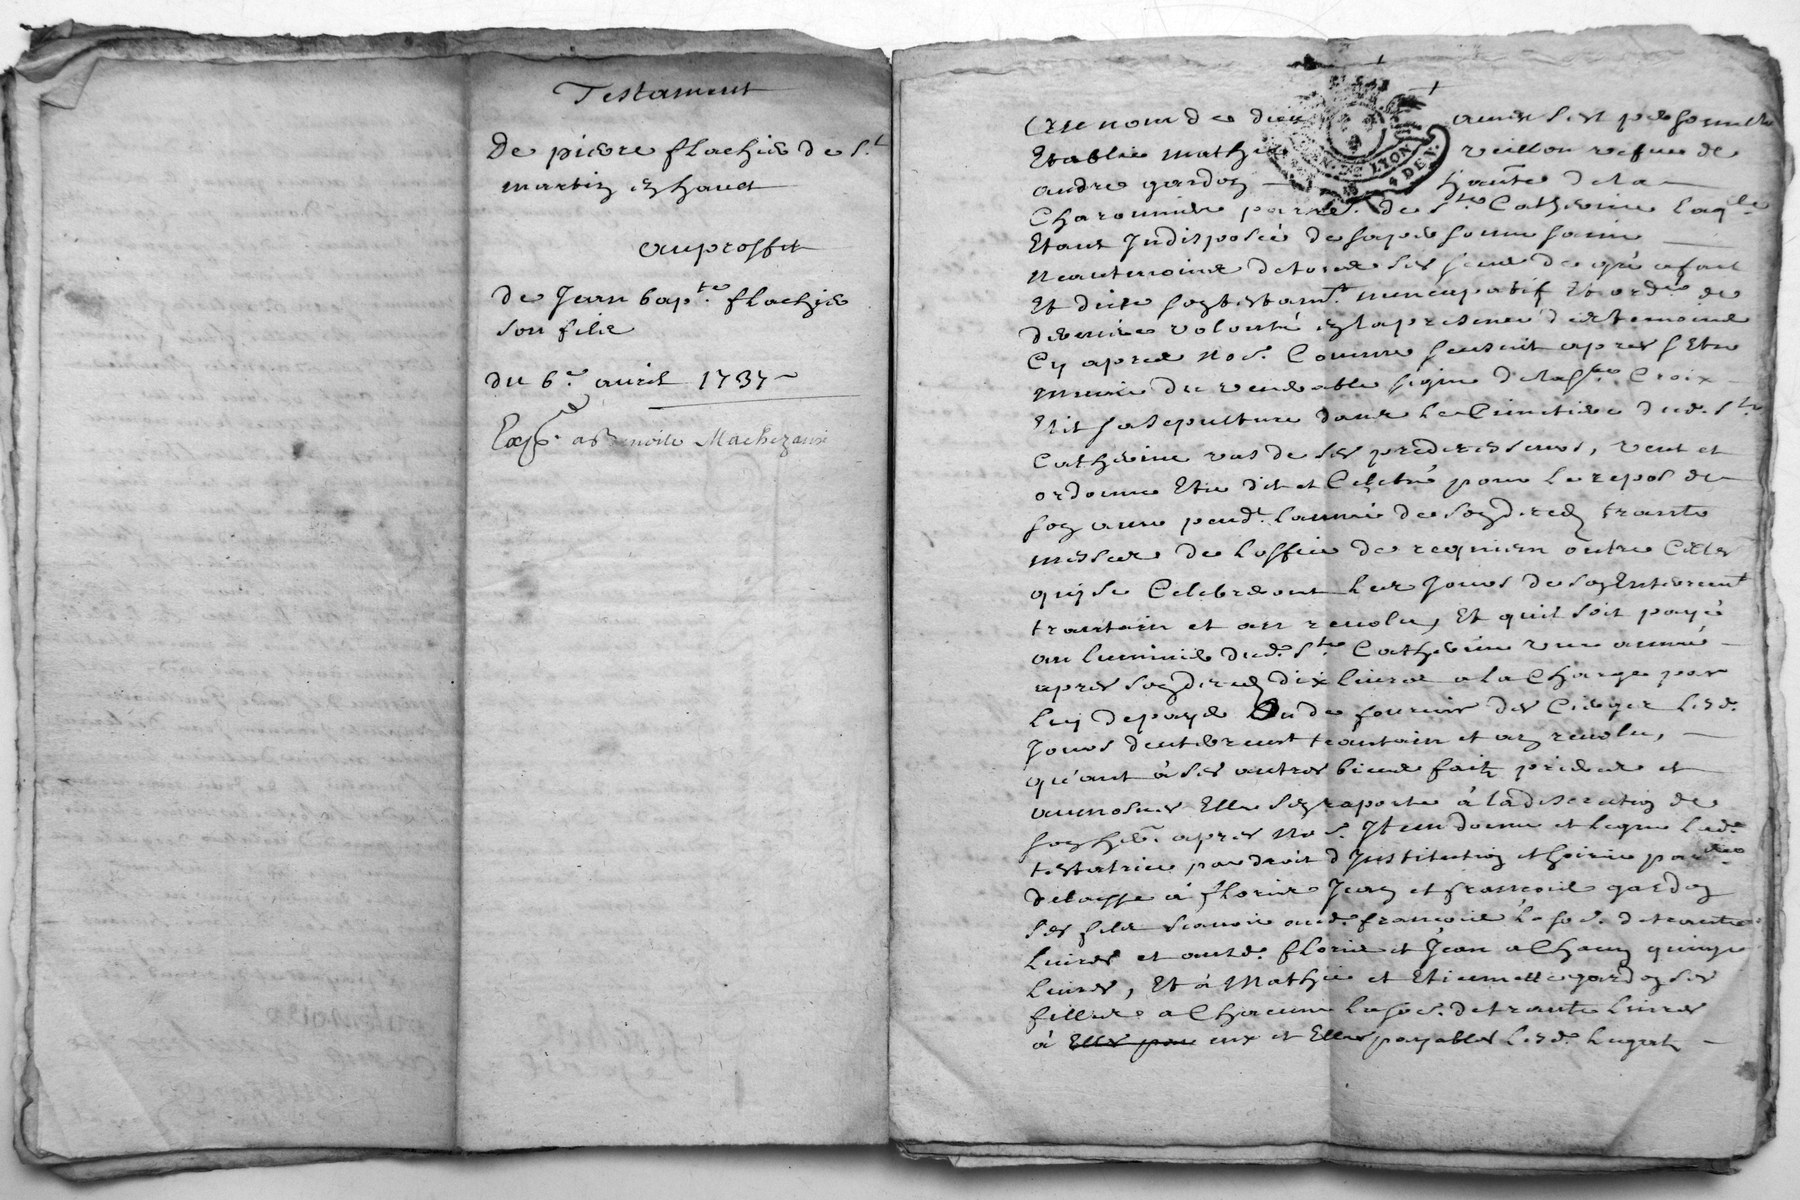 Testament
De pierre flachier de S.t
martin en haut
au proffit
de Jean bap.te flachier
son filz
du 6.e avril 1737
Exp.é a benoite
Au nom de dieu amen S'est personnellem
Establie mathie veillon vefve de
andre gardon hante de la
Charonniere parr.e de S.te Catherine laq.le
Etant Indisposée de sa personne saine
neantmoins de tous ses sens de gré a fait
Et dicté son testam.t nuncupatif et ord.ce de
derniere volonté en la presence des temoins
Cy apres no.s Comme s'ensuit apres s'Etre
munie du venerable signe de la S.te Croix
Elit sa sepulture dans le Cimetiere dud. S.te
Catherine vas de ses predecesseurs, veut et
ordonne Etre dit et Celebré pour le repos de
son ame pend.t l'année de son deced trante
messes de l'office de requiem outre Celles
qui se Celebreront les Jours de son Enterrem.t
trantain et an revolu, Et qu'il soit payé
au luminie dud. S.te Catherine une année
apres son deced dix livres a la Charge par
luy de payer ou de fournir des Cierges lesd.
Jours d'enterrement trantain et an revolu,
qu'ant à ses autres biens faitz prieres et
aumosnes Elle s'en raporte à la discretion de
son her. apres no.s Item donne et legue lad.
testatrice par droit d'Institution et hoirie par.re
delaisse à florie Jean et françois gardon
ses fils scavoir aud. françois la so.e de trante
livres et ausd. florie et Jean a Chacun quinze
livres, Et à Mathie et Etiennette gardon ses
filles a Chacune la so.e de trante livres
à Elles par eux et Elles payables lesd. legats
LYON
4 DEN.